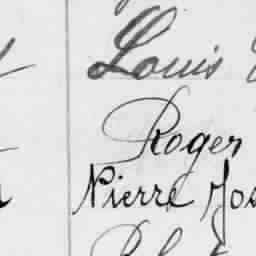 Louis
Roger
Pierre Jos